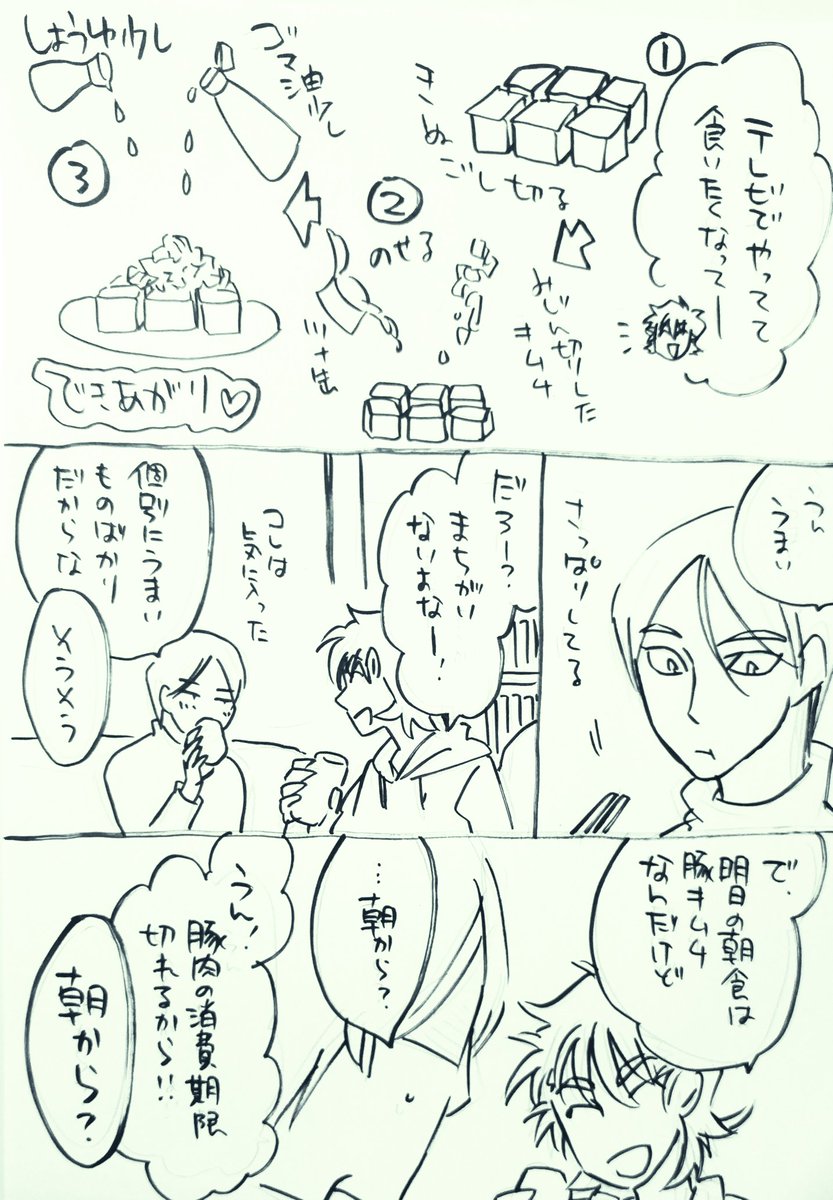 テレビでやってて
食いたくなってー
①
きぬごし切る
みじん切りした
キムチ
②
のせる
ツナ缶
ゴマ油少し
しょうゆ少し
③
できあがり♡
うん
うまい
さっぱりしてる
だろー?
まちがい
ないよなー!
コレは
気に入った
個別にうまい
ものばかり
だからな
メうメう
で、
明日の朝食は
豚キムチ
なんだけど
…朝から?
うん!
豚肉の消費期限
切れるから!!
朝から?